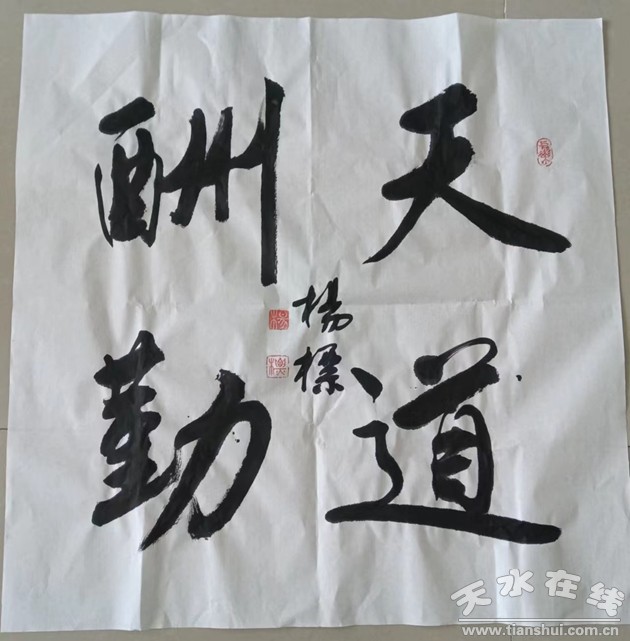 天道
酬勤
杨标
天水在线
www.tianshui.com.cn